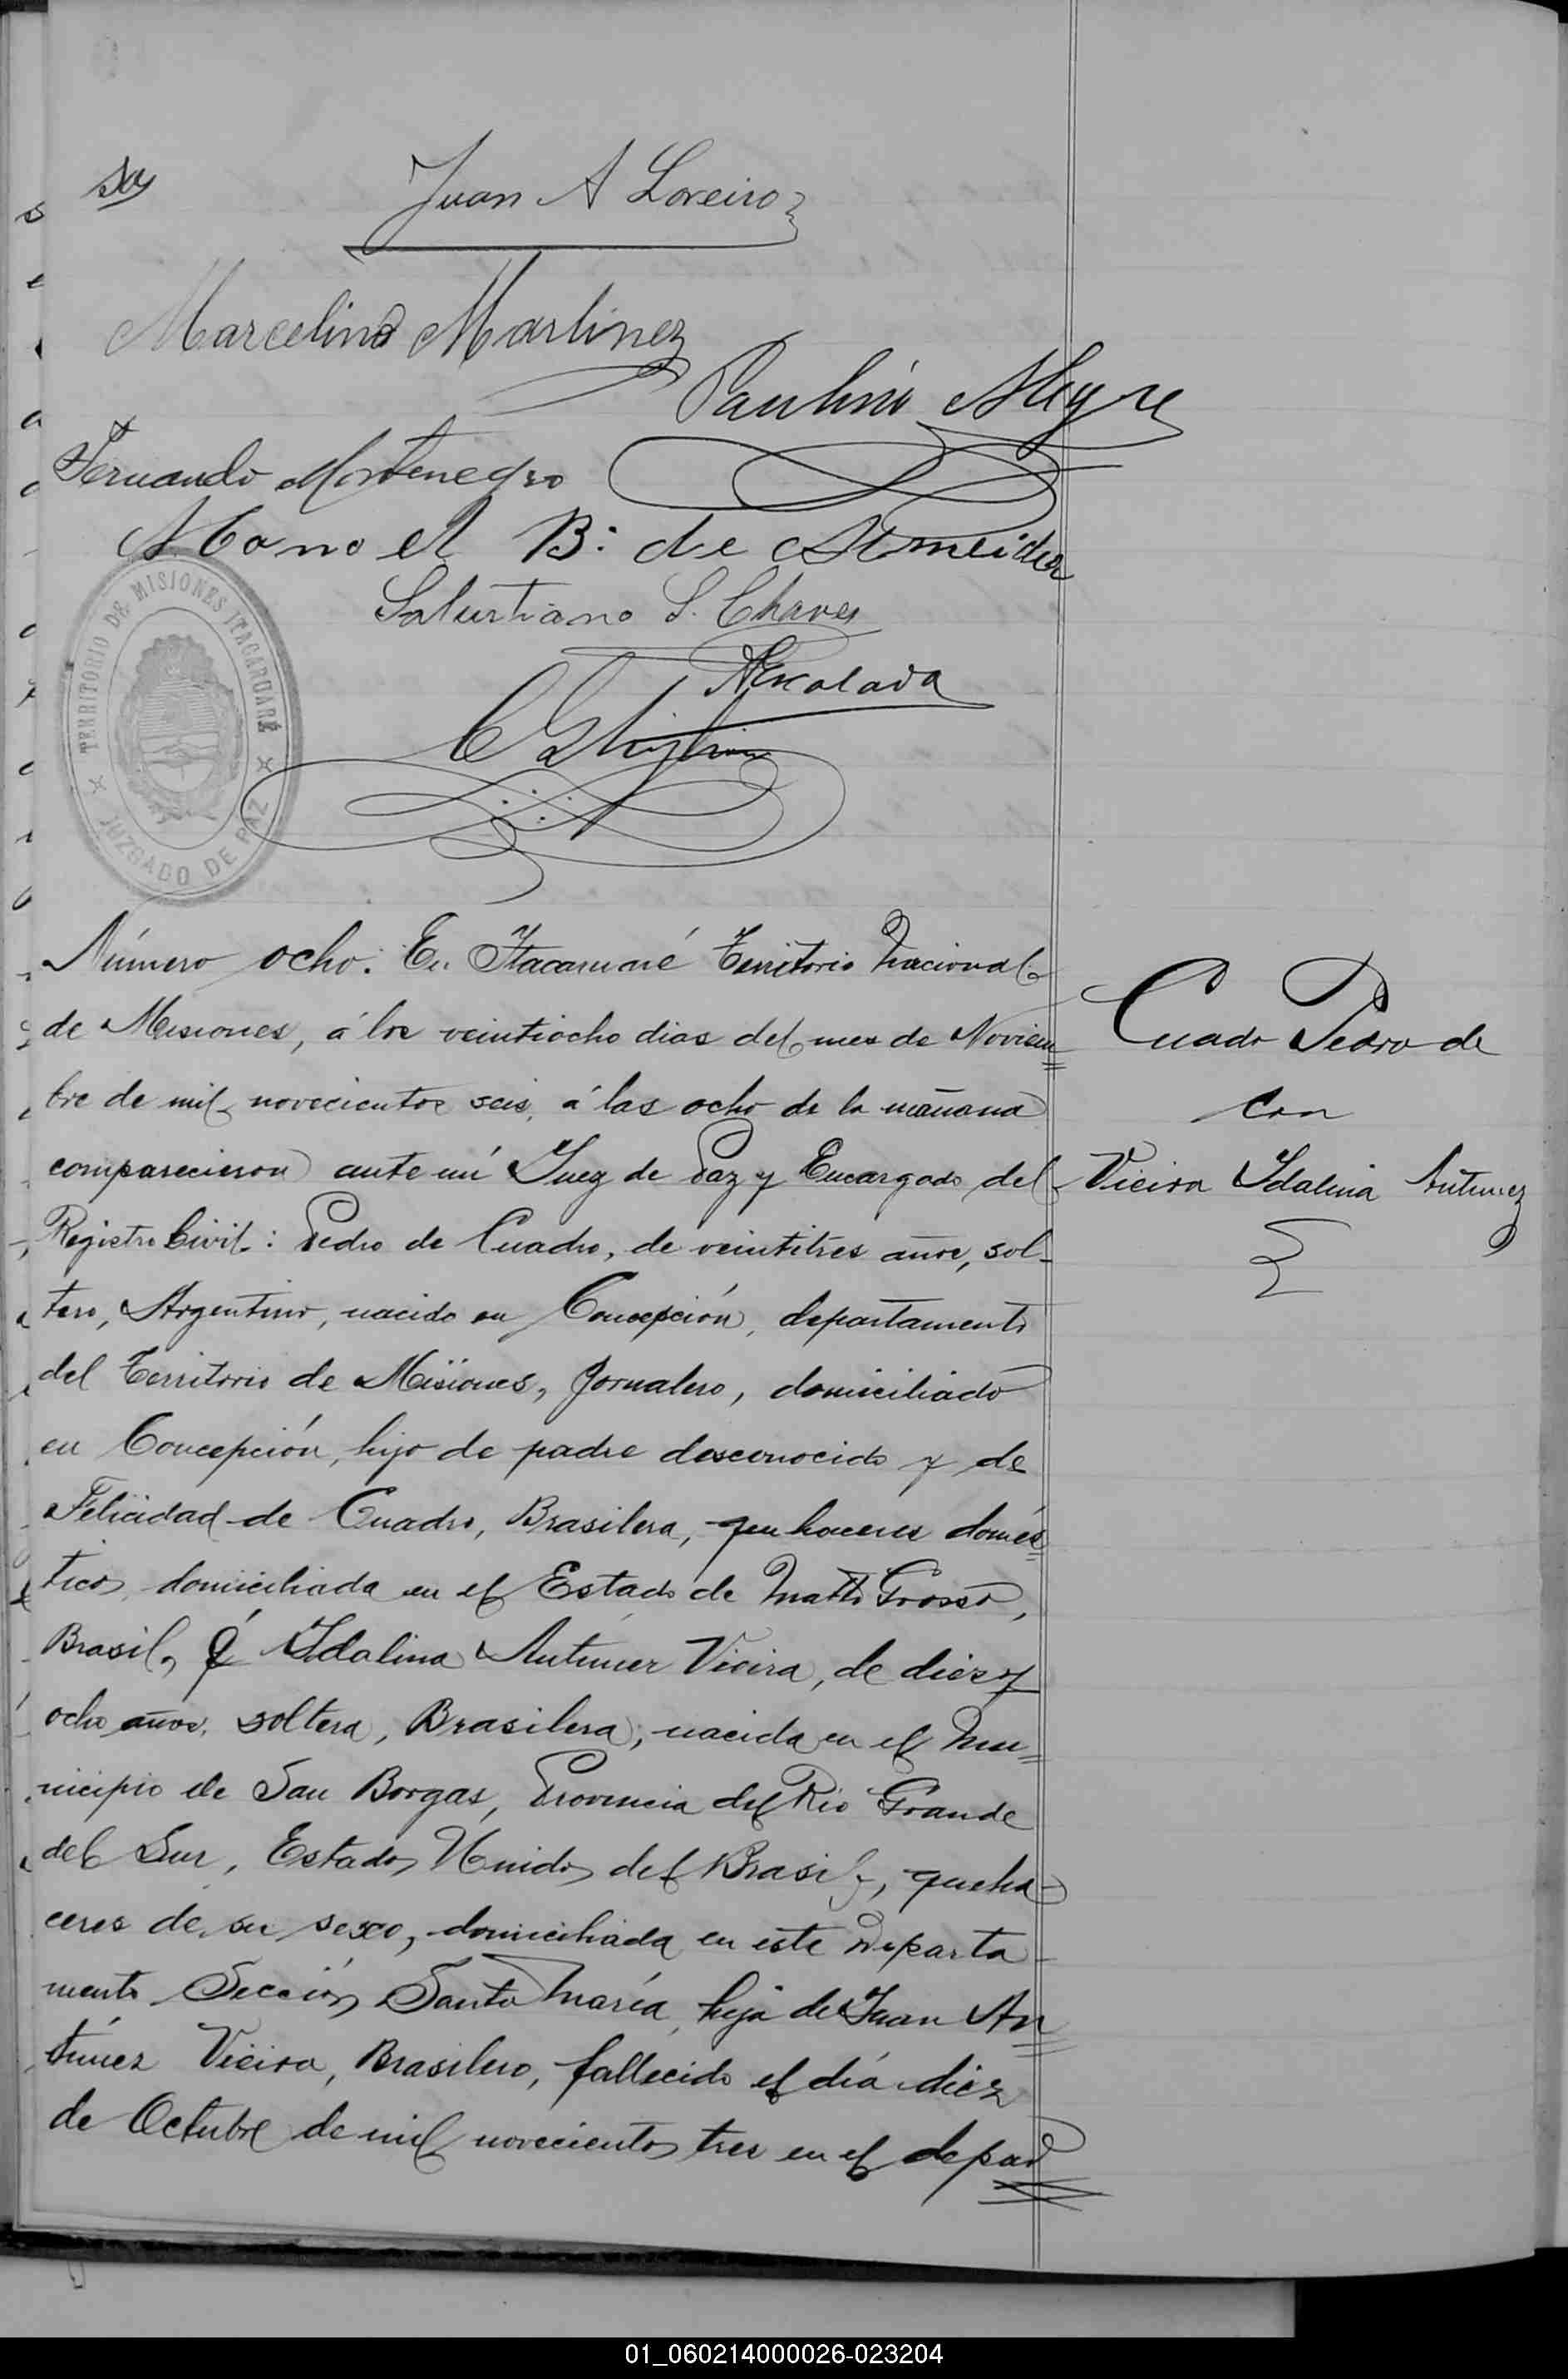 Juan A Loreiro
Marcelino Martinez
Paulino Alegre
Fernando Montenegro
Manoel B. de Almeida
Salustiano S. Chaves
TERRITORIO DE MISIONES ITACARUARÉ
JUZGADO DE PAZ
Número ocho. En Itacaruaré Territorio Nacional
de Misiones, á los veintiocho dias del mes de Noviem
bre de mil novecientos seis, á las ocho de la mañana
comparecieron ante mí Juez de Paz y Encargado del
Registro Civil: Pedro de Cuadro, de veintitres años, sol-
tero, Argentino, nacido en Concepción, departamento
del Territorio de Misiones, Jornalero, domiciliado
en Concepción, hijo de padre desconocido y de
Felicidad de Cuadro, Brasilera, quehaceres domés
ticos, domiciliada en el Estado de Matto Grosso,
Brasil, é Idalina Antunez Vieira, de diez y
ocho años, soltera, Brasilera, nacida en el Mu=
nicipio de San Borgas, Provincia del Rio Grande
del Sur, Estados Unidos del Brasil, queha-
ceres de su sexo, domiciliada en este Departa-
mento Sección Santa María, hija de Juan An
túnez Vieira, Brasilero, fallecido el día diez
de Octubre de mil novecientos tres en el depar
Cuadro Pedro de
con
Vieira Idalina Antunez
01_060214000026-023204